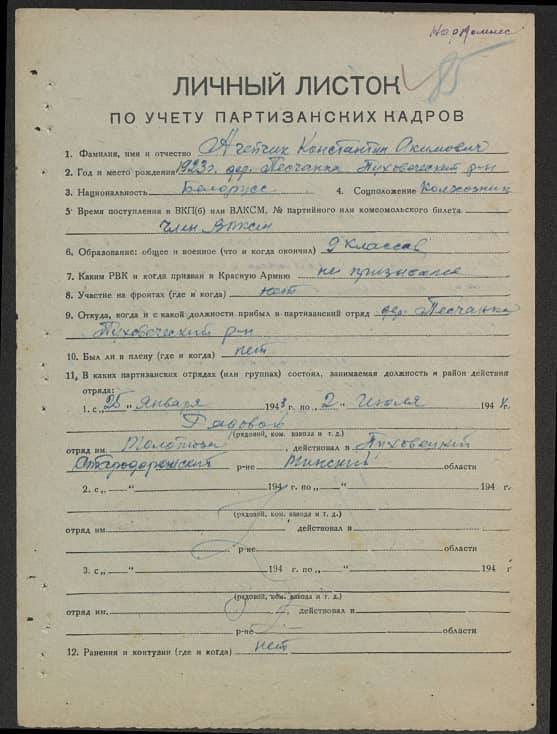 85
ЛИЧНЫЙ ЛИСТОК
ПО УЧЕТУ ПАРТИЗАНСКИХ КАДРОВ
1. Фамилия, имя и отчество Ачепчик Константин Акимович
2. Год и место рождения 1923 г. дер. Песчанка Пуховический р-н
3. Национальность Белорусс 4. Соцположение Колхозник
5 Время поступления в ВКП(б) или ВЛКСМ, № партийного или комсомольского билета
Член ВЛКСМ
6. Образование: общее и военное (что и когда окончил) 9 классов
7. Каким РВК и когда призван в Красную Армию не призывался
8. Участие на фронтах (где и когда) нет
9. Откуда, когда и с какой должности прибыл в партизанский отряд дер. Песчанка
Пуховический р-н
10. Был ли в плену (где и когда) нет
11. В каких партизанских отрядах (или группах) состоял, занимаемая должность и район действия
отряда:
1. с „25" января 1943 г. по „2" июля 1944 г.
Рядовой
(рядовой, ком. взвода и т. д.)
отряд им. Молотова, действовал в Пуховицкий
Стародорожский р-не Минский области
2. с „ " 194 г. по „ " 194 г.
(рядовой, ком. взвода и т. д.)
отряд им. действовал в
р-не области
3. с „ " 194 г. по „ " 194 г
(рядовой, ком. взвода и т. д.)
отряд им. действовал в
р-не области
12. Ранения и контузии (где и когда) нет